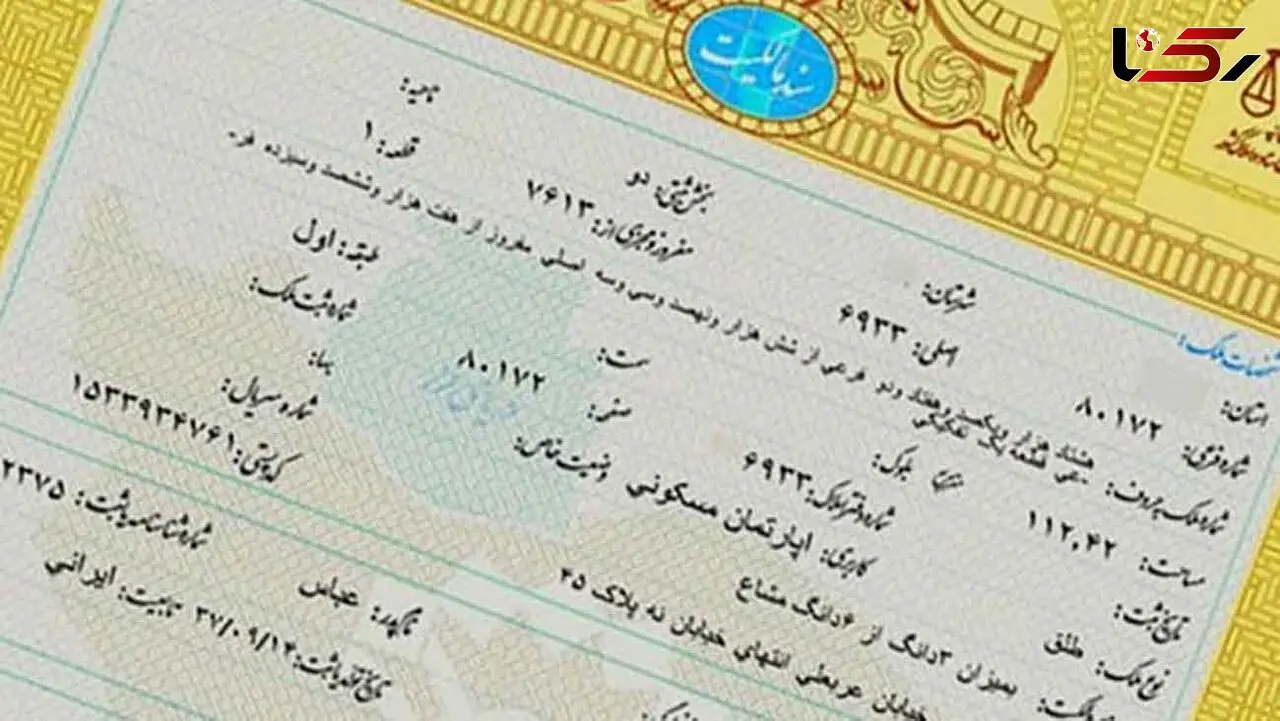 رکنا
سند مالکیت
مشخصات ملک:
استان: شهرستان: بخش ثبتی: دو ناحیه:
شماره فرعی: ۸۰۱۷۲ اصلی: ۶۹۳۳ مفروز و مجزی از: ۷۶۱۳ قطعه: ۱
شماره ملک بحروف: هشتاد هزار و یکصد و هفتاد و دو فرعی از شش هزار و نهصد و سی و سه اصلی مفروز از هفت هزار و ششصد و سیزده فر-
عی قطعه یک تفکیکی
مساحت: ۱۱۲,۴۲ بلوک: سمت: طبقه: اول
تاریخ ثبت: شماره دفتر املاک: ۶۹۳۳ صفحه: ۸۰۱۷۲ شماره ثبت ملک:
نوع ملک: طلق کاربری: آپارتمان مسکونی وضعیت خاص: بها:
بمیزان ۳دانگ از ۶دانگ مشاع شماره سریال:
خیابان عربعلی انتهای خیابان نه پلاک ۴۵ کد پستی: ۱۵۳۳۹۳۴۷۶۱
نام پدر: عباس شماره شناسنامه یا ثبت: ۲۳۷۵
تاریخ تولد یا ثبت: ۳۷/۰۹/۱۴ تابعیت: ایرانی